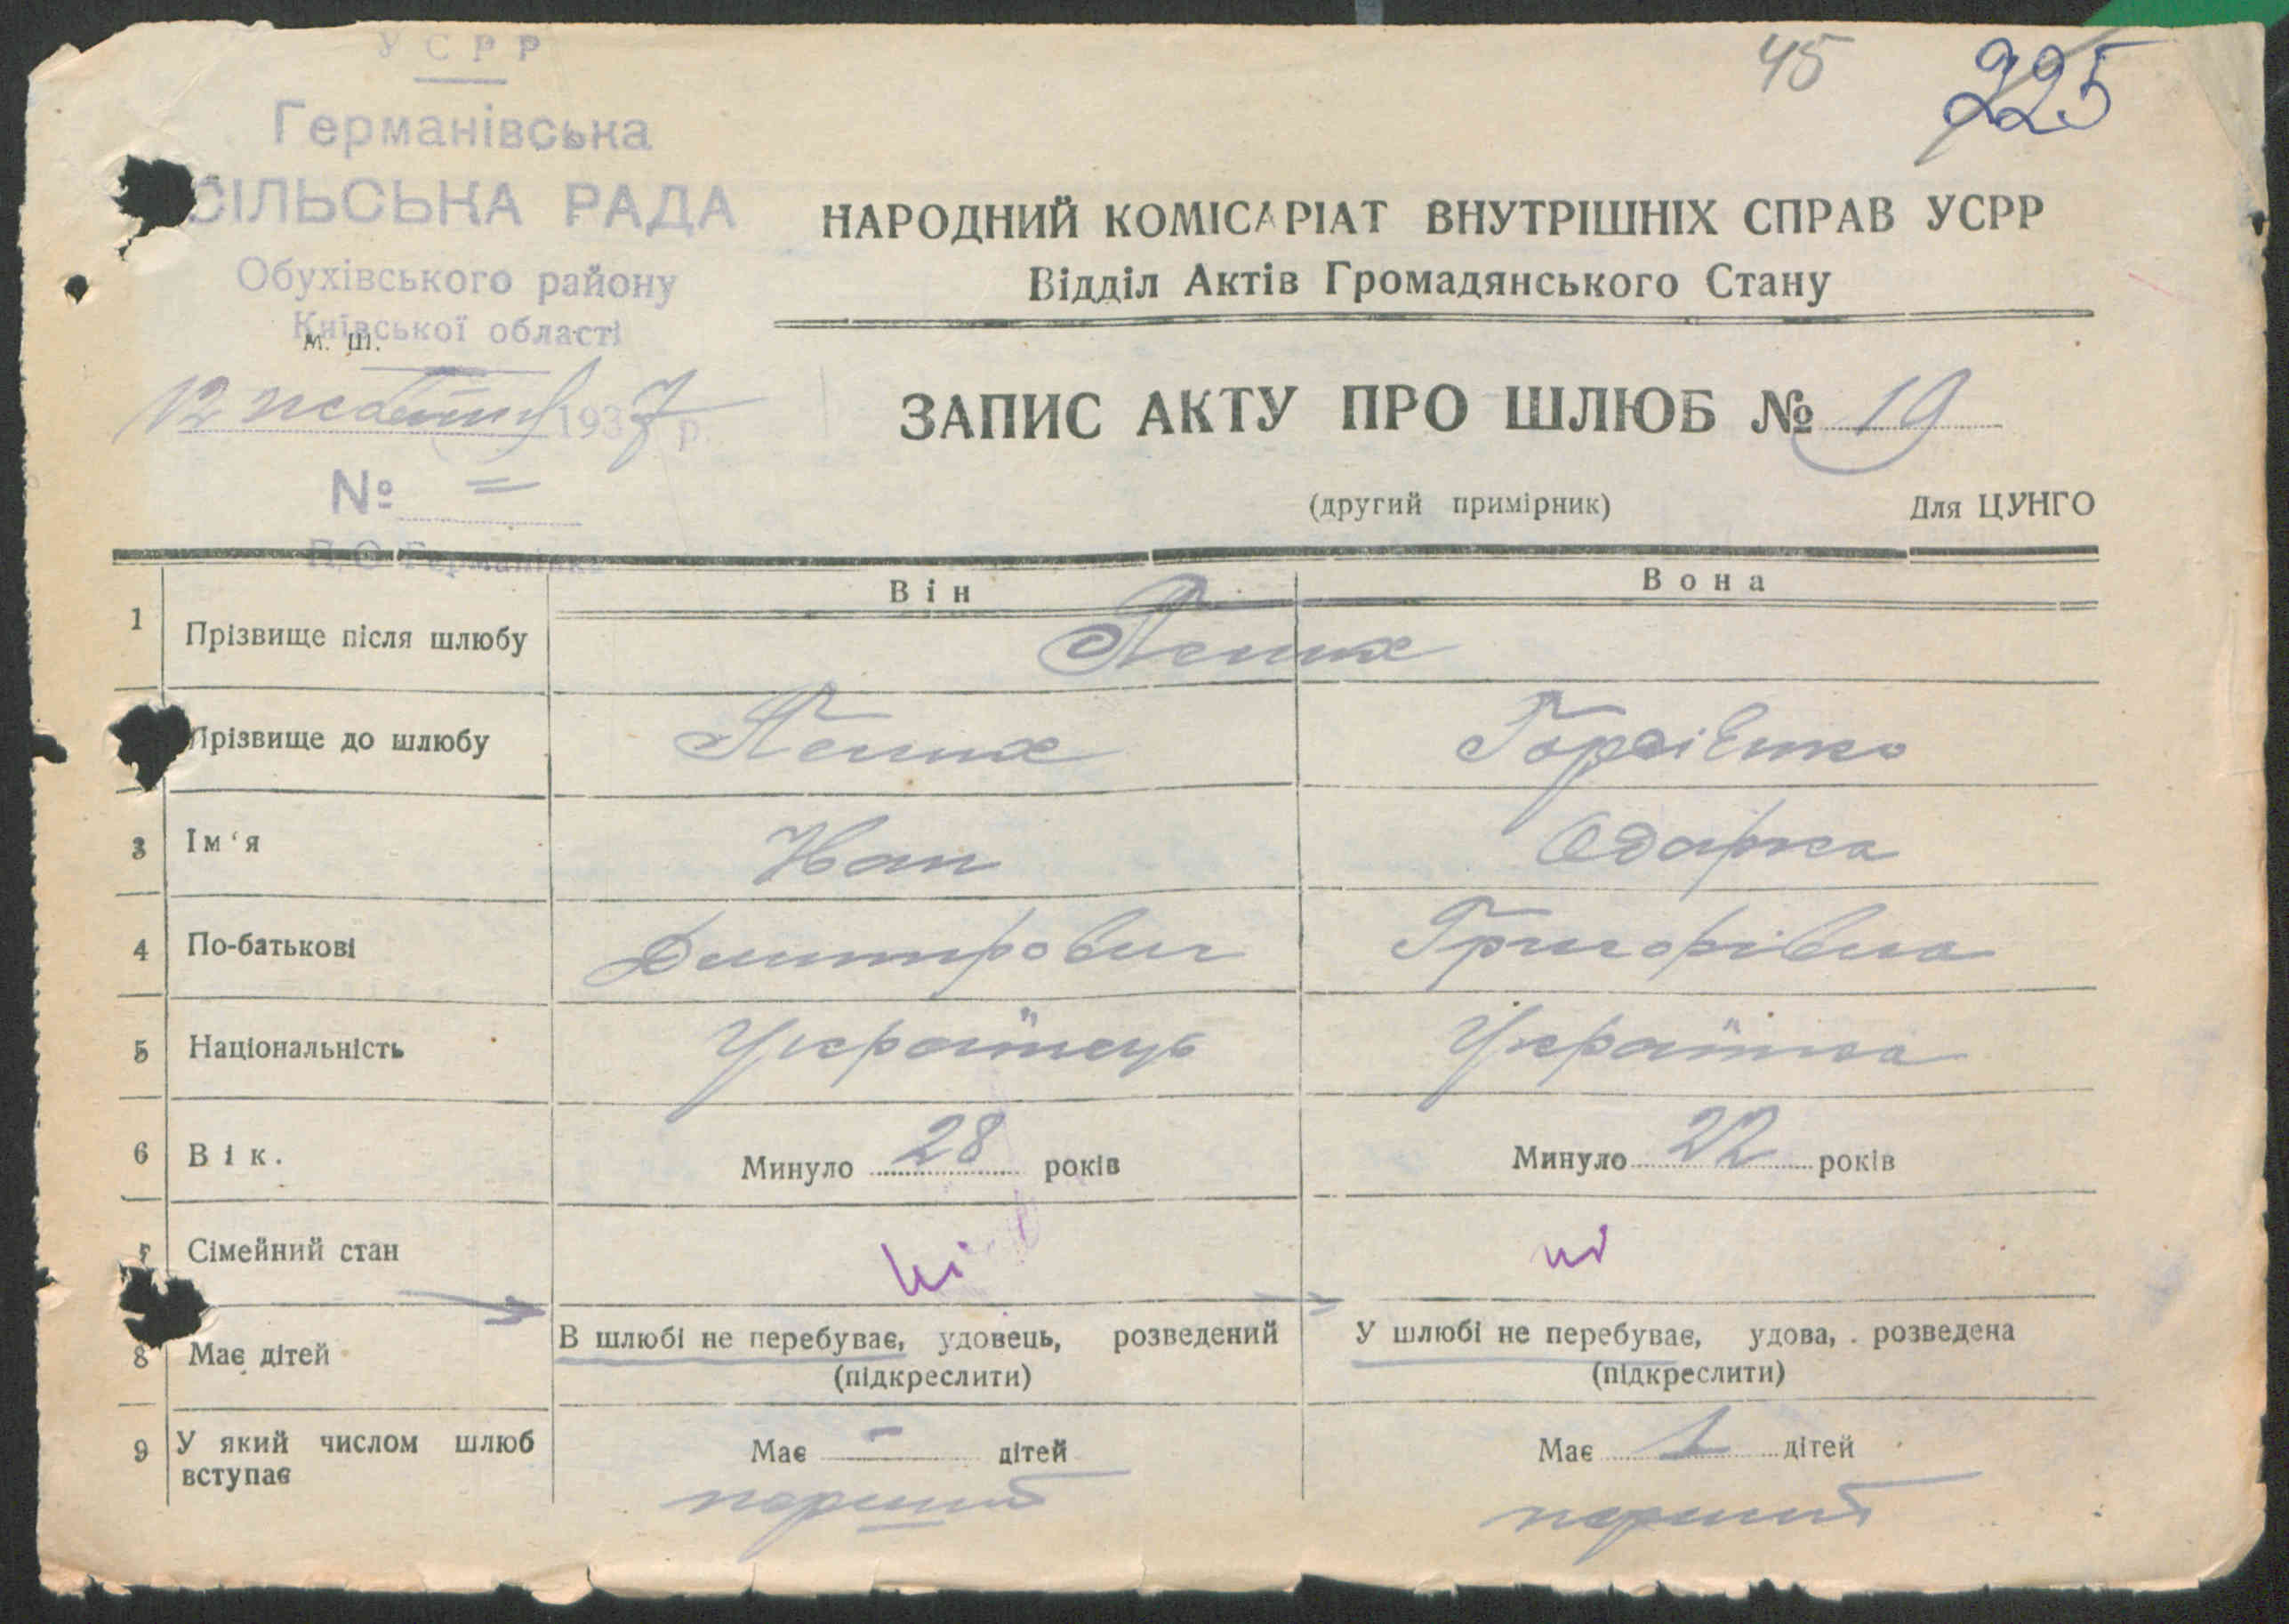 УСРР
45
225
Германівська
СІЛЬСЬКА РАДА
НАРОДНИЙ КОМІСАРІАТ ВНУТРІШНІХ СПРАВ УСРР
Обухівського району
Відділ Актів Громадянського Стану
Київської області
М. Ш.
12 жовтня 1937 р.
ЗАПИС АКТУ ПРО ШЛЮБ № 19
№ =
(другий примірник) Для ЦУНГО
П/О Германівка
Він Вона
1 Прізвище після шлюбу Пених
Прізвище до шлюбу Пених Гордієнко
3 Ім'я Іван Одарка
4 По-батькові Дмитрович Григорівна
5 Національність Українець Українка
6 Вік. Минуло 28 років Минуло 22 років
7 Сімейний стан ні ні
8 Має дітей В шлюбі не перебуває, удовець, розведений У шлюбі не перебуває, удова, розведена
(підкреслити) (підкреслити)
9 У який числом шлюб вступає Має - дітей Має 1 дітей
перший перший